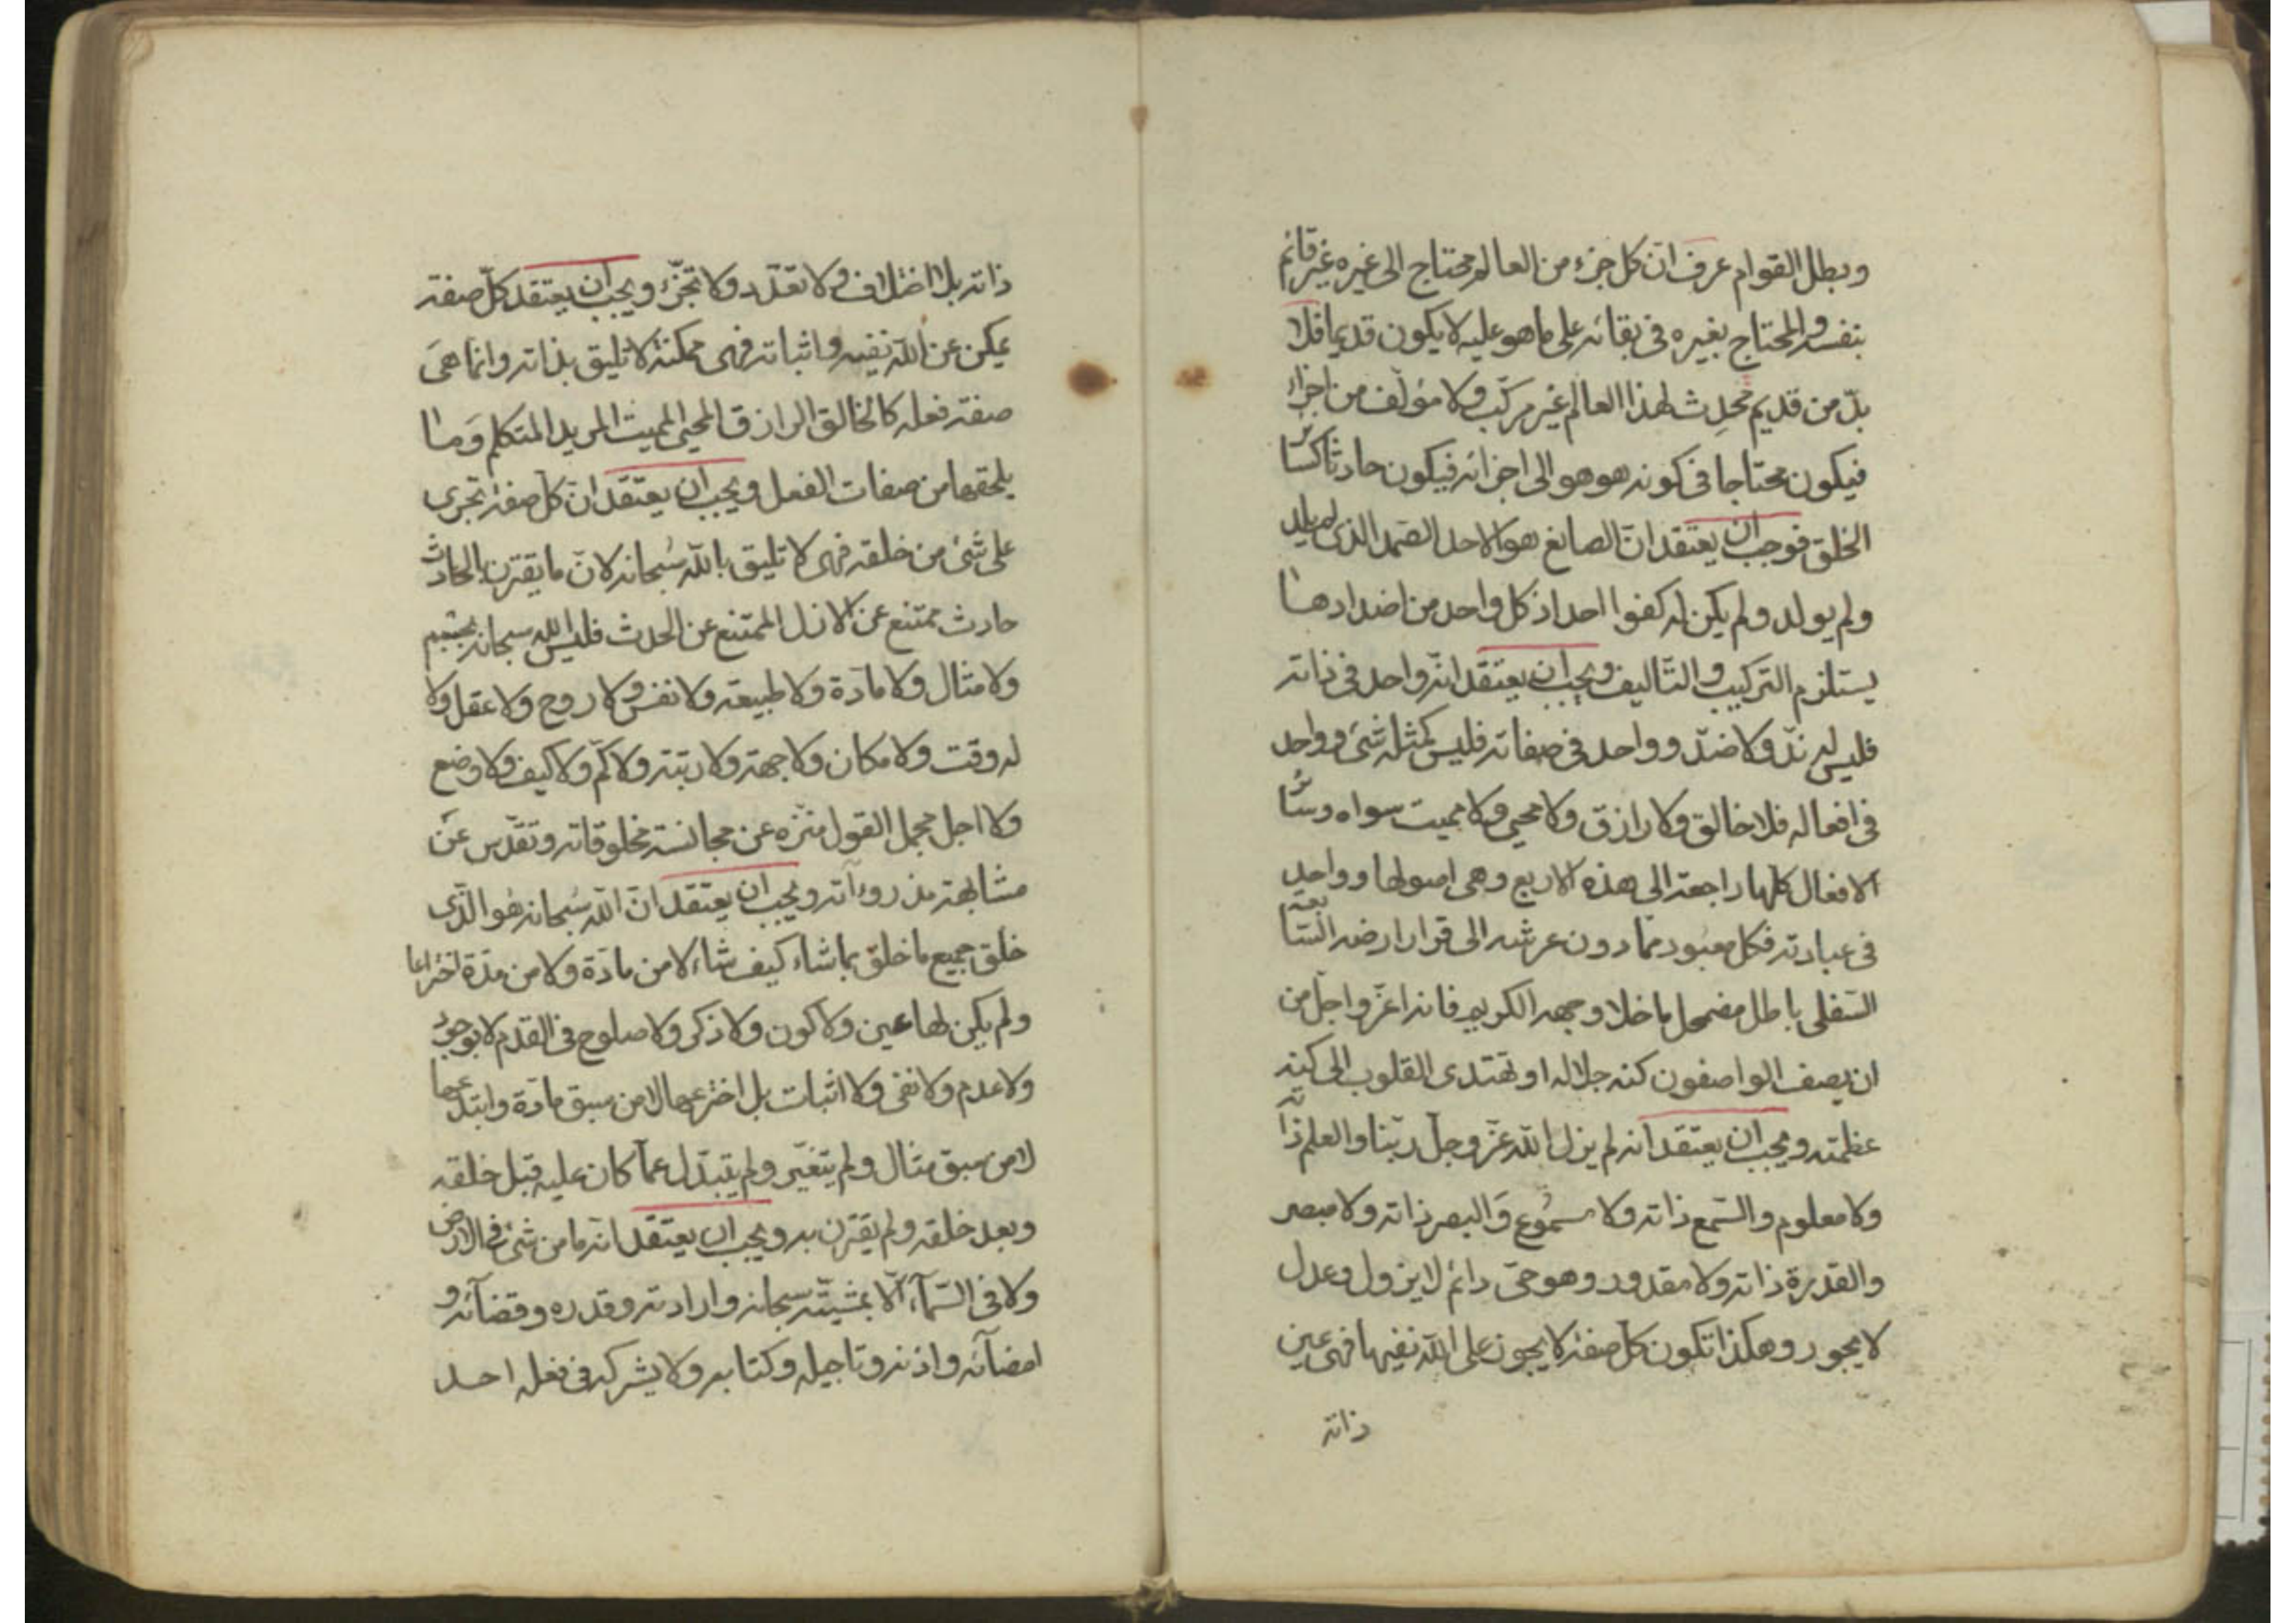 وبطل القوام عرف ان كل جزء من العالم محتاج الى غيره غير قائم
بنفسه والمحتاج بغيره فى بقائه على ما هو عليه لا يكون قديما فلا
بدّ من قديم محدث لهذا العالم غير مركّب ولا مؤلف من اجزاء
فيكون محتاجا فى كونه هو هو الى اجزائه فيكون حادثا كسائر
الخلق فوجب ان يعتقد انّ الصانع هو الاحد الصمد الذى لم يلد
ولم يولد ولم يكن له كفوا احد اذ كل واحد من اضدادها
يستلزم التركيب والتّاليف ويجب ان يعتقد انّه واحد فى ذاته
فليس له ندّ ولا ضدّ وواحد فى صفاته فليس كمثله شئ وواحد
فى افعاله فلا خالق ولا رازق ولا محيى ولا مميت سواه وسائر
الافعال كلّها راجعة الى هذه الاربع وهى اصولها وواحد
فى عبادته فكل معبود ممّا دون عرشه الى قرار ارضه السّابعة
السّفلى باطل مضمحل ما خلا وجهه الكريم فانه اعزّ واجلّ من
ان يصف الواصفون كنه جلاله او تهتدى القلوب الى كنه
عظمته ويجب ان يعتقد انه لم يزل الله عزّ وجلّ ربّنا والعلم ذاته
ولا معلوم والسّمع ذاته ولا مسموع والبصر ذاته ولا مبصر
والقدرة ذاته ولا مقدور وهو حىّ دائم لا يزول وعدل
لا يجور وهكذا تكون كلّ صفة لا يجوز على الله نفيها فهى عين
ذاته
ذاته بلا اختلاف ولا تعدّد ولا تجزّء ويجب ان يعتقد كلّ صفة
يمكن عن الله نفيه واثباته فهى ممكنة لا تليق بذاته وانما هى
صفة فعله كالخالق الرازق المحيى المميت المريد المتكلم وما
يلحقها من صفات الفعل ويجب ان يعتقد انّ كلّ صفة تجرى
على شئ من خلقه فهى لا تليق بالله سبحانه لانّ ما يقترن بالحادث
حادث ممتنع عن الازل الممتنع عن الحدث فليس الله سبحانه بجسم
ولا مثال ولا مادّة ولا طبيعة ولا نفس ولا روح ولا عقل ولا
له وقت ولا مكان ولا جهة ولا رتبة ولا كمّ ولا كيف ولا وضع
ولا اجل مجمل القول منزّه عن مجانسة مخلوقاته وتقدّس عن
مشابهة مذروءاته ويجب ان يعتقد انّ الله سبحانه هو الذّى
خلق جميع ما خلق بما شاء كيف شاء لا من مادّة ولا من مدّة اختراعا
ولم يكن لها عين ولا كون ولا ذكر ولا صلوح فى القدم لا بوجود
ولا عدم ولا نفى ولا اثبات بل اخترعها لا من سبق مادّة وابتدعها
لا من سبق مثال ولم يتغيّر ولم يتبدّل عمّا كان عليه قبل خلقه
وبعد خلقه ولم يقترن به ويجب ان يعتقد انّه ما من شئ فى الارض
ولا فى السّماء الّا بمشيّته سبحانه وارادته وقدره وقضآئه و
امضآئه واذنه وتاجيله وكتابه ولا يشركه فى فعله احد